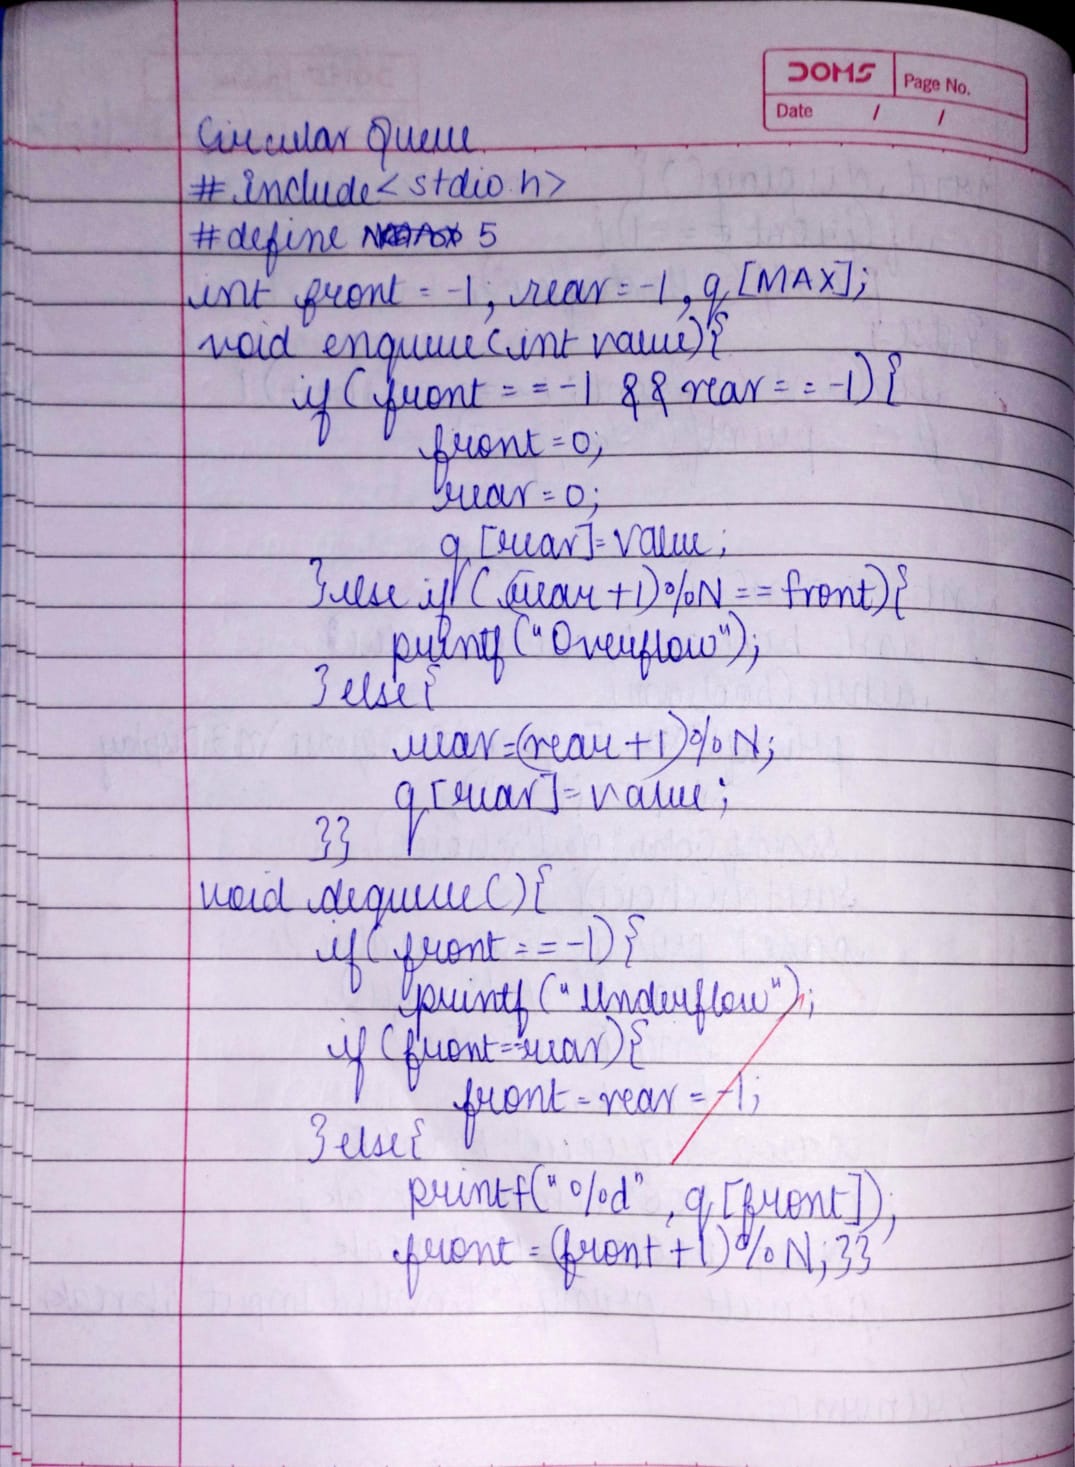 DOMS
Page No.
Date / /
Circular Queue
# include<stdio.h>
#define 5
int front = -1, rear = -1, q[MAX];
void enqueue(int value){
if(front == -1 && rear == -1){
front=0;
rear=0;
q[rear]=value;
}else if((rear+1)%N==front){
printf("Overflow");
}else{
rear=(rear+1)%N;
q[rear]=value;
}}
void dequeue(){
if(front==-1){
printf("Underflow");
if(front==rear){
front=rear=-1;
}else{
printf("%d", q[front]);
front=(front+1)%N;}}